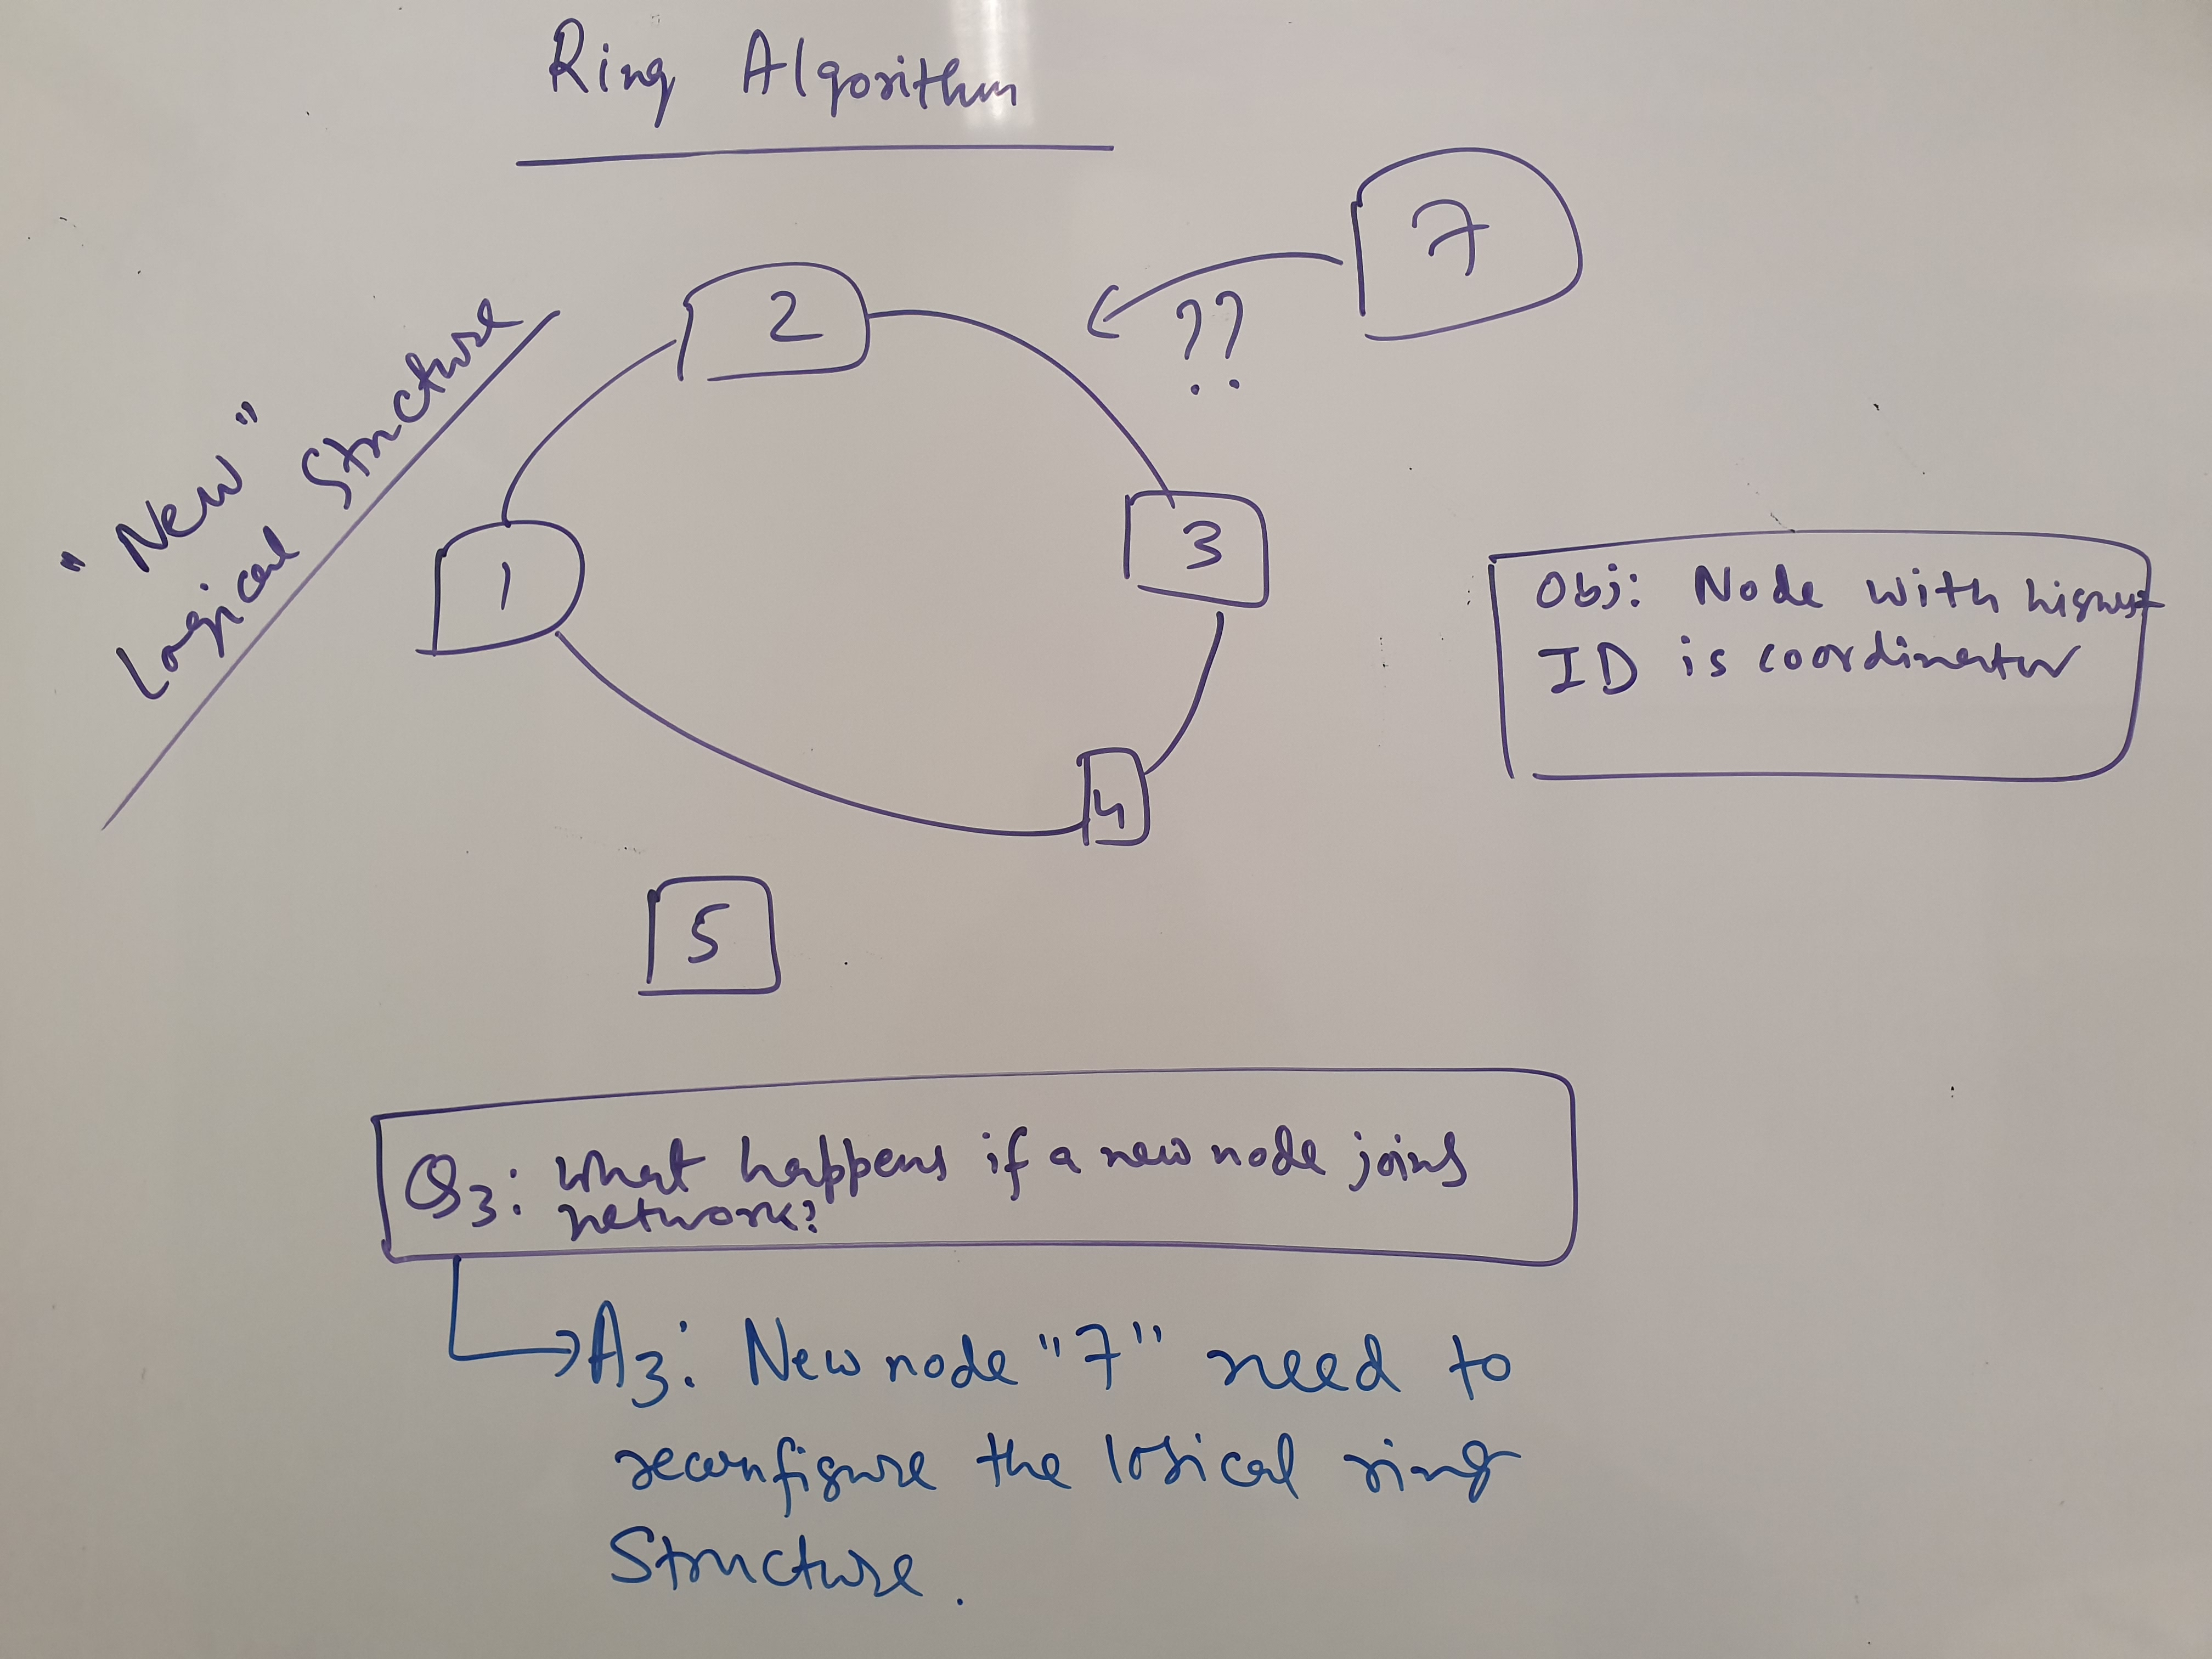 Ring Algorithm
7
??
2
"New"
Logical Structure
1
3
Obj: Node with highest
ID is coordinator
4
5
Q3: What happens if a new node joins
network?
A3: New node "7" need to
reconfigure the logical ring
Structure.